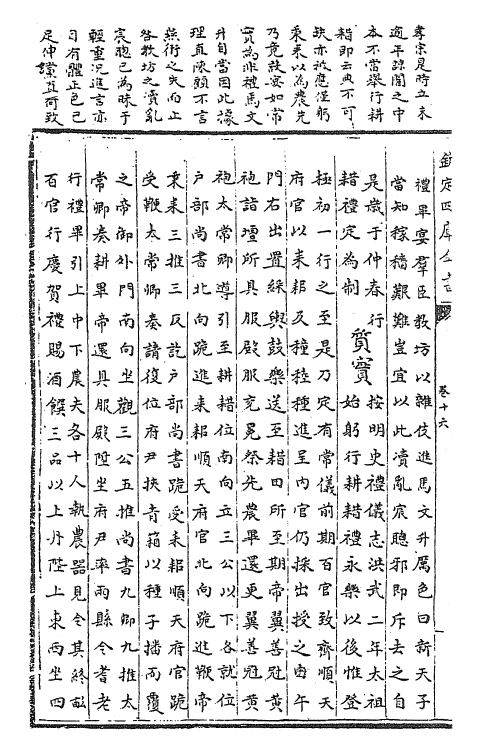 孝宗是時立未
逾年諒闇之中
本不當舉行耕
耤即云典不可
缺亦祗應僅躬
秉耒以為農先
乃竟設宴如常
實為非禮馬文
升自當因此援
理直陳顧不言
燕衎之失而止
咎教坊之瀆亂
宸聰已為昧于
輕重況進言亦
自有體正色已
足伸讜直何致
欽定四庫全書
卷十六
禮畢宴羣臣教坊以雜伎進馬文升厲色曰新天子
當知稼穡艱難豈宜以此瀆亂宸聰邪即斥去之自
是歲于仲春行
耤禮定為制
質實
按明史禮儀志洪武二年太祖
始躬行耕耤禮永樂以後惟登
極初一行之至是乃定有常儀前期百官致齊順天
府官以耒耜及種稑種進呈內官仍捧出授之由午
門右出置綵輿鼓樂送至耤田所至期帝翼善冠黃
袍詣壇所具服殿服衮冕祭先農畢還更翼善冠黃
袍太常卿導引至耕耤位南向立三公以下各就位
戶部尚書北向跪進耒耜順天府官北向跪進鞭帝
秉耒三推三反訖戶部尚書跪受耒耜順天府官跪
受鞭太常卿奏請復位府尹挾青箱以種子播而覆
之帝御外門南向坐觀三公五推尚書九卿九推太
常卿奏耕畢帝還具服殿陞坐府尹率兩縣令耆老
行禮畢引上中下農夫各十人執農器見令其終畝
百官行慶賀禮賜酒饌三品以上丹陛上東西坐四